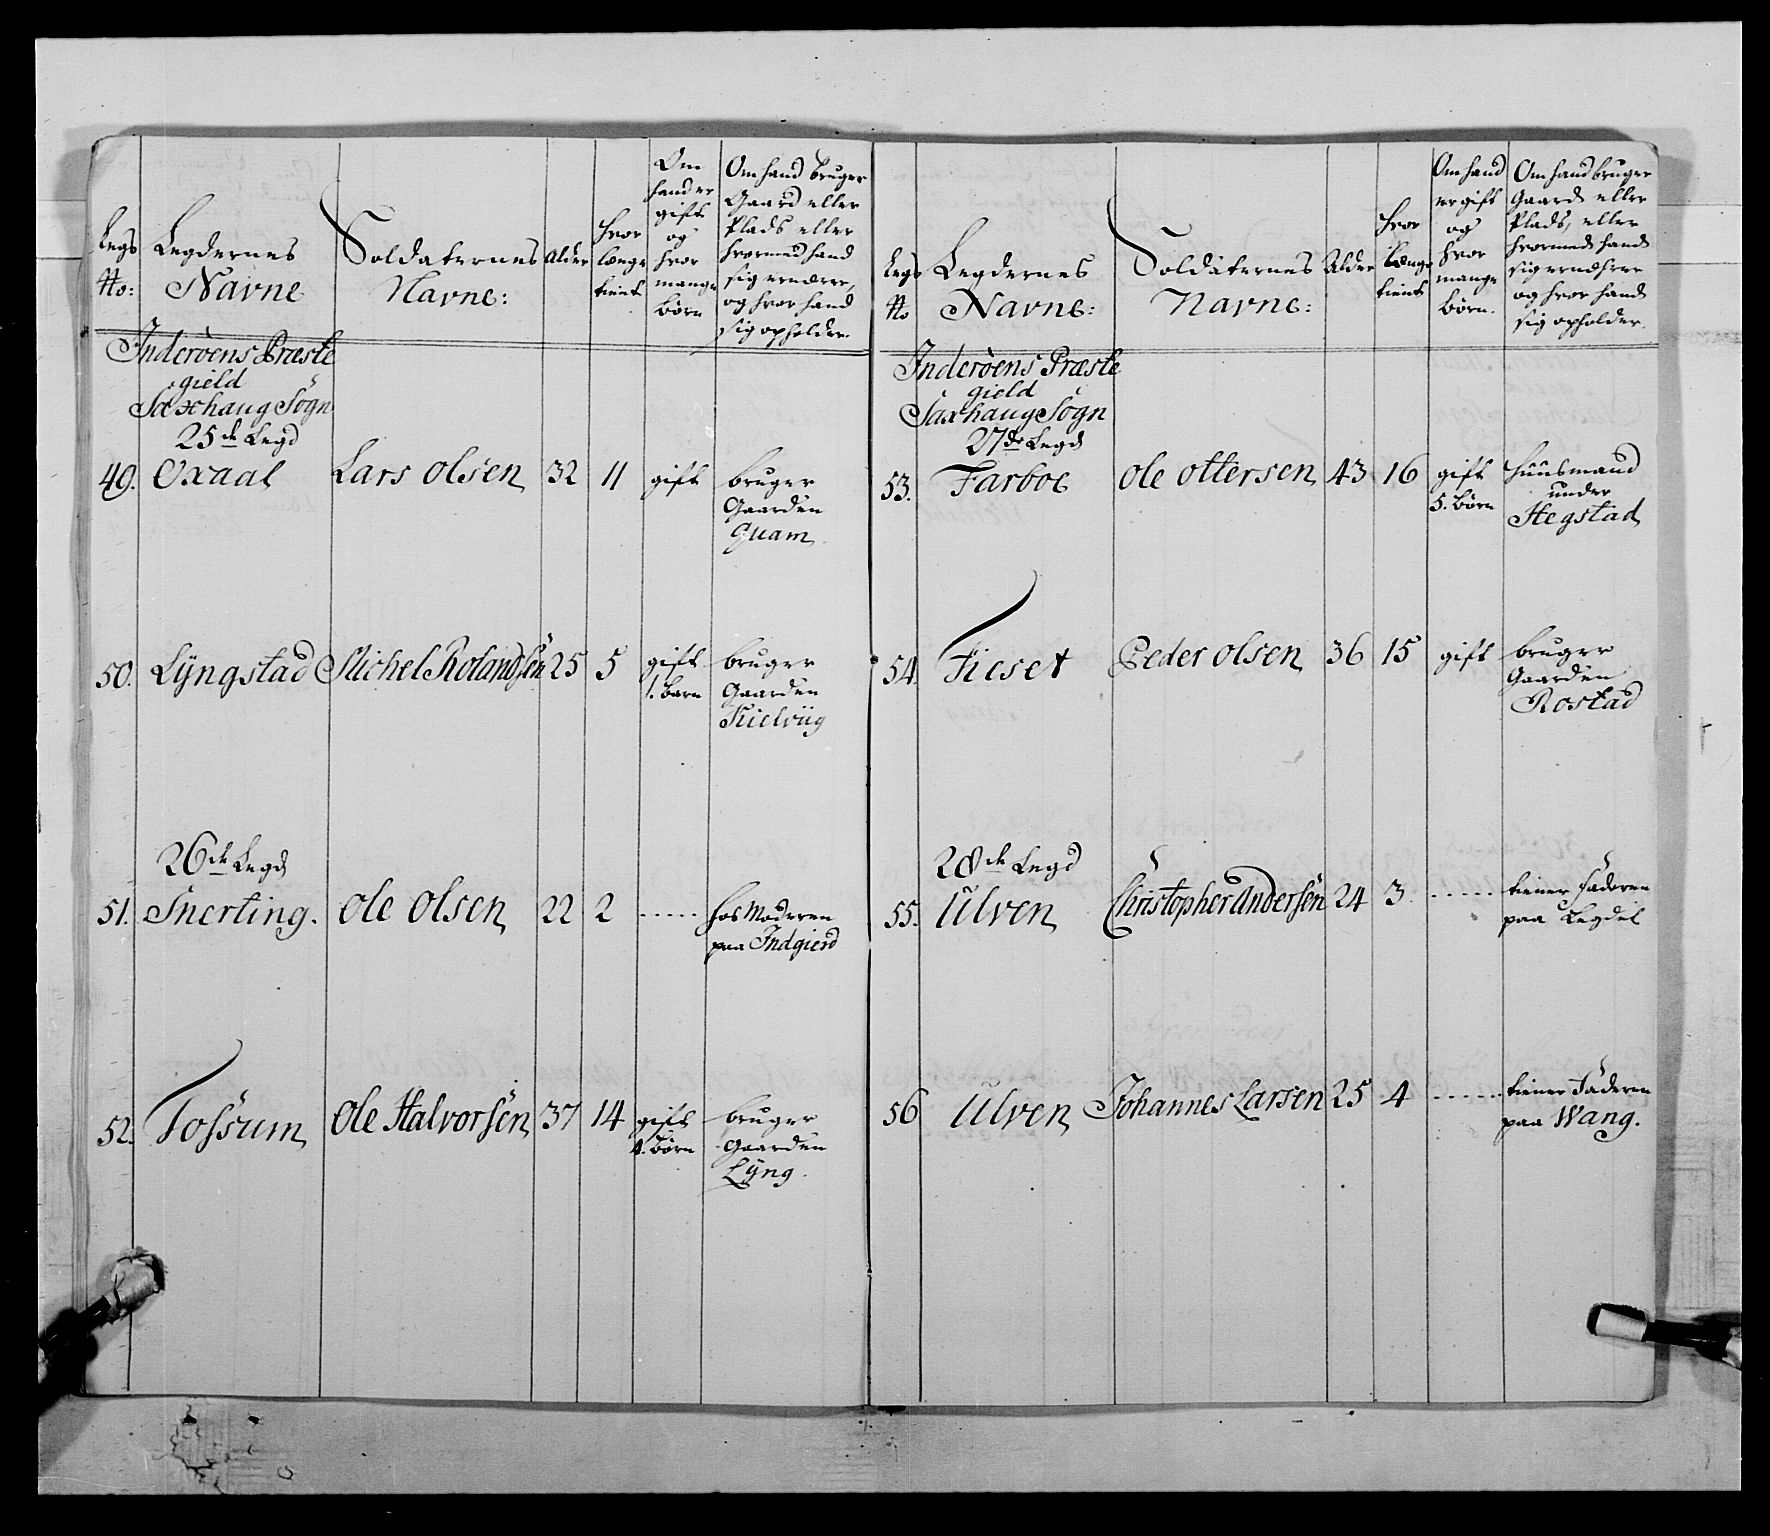 Legs No: Legdernes Navne Soldaternes Navne: Alder hvor længe tient Om hand er gift og hvor mange børn Om hand bruger Gaard eller Plads eller hvormed hand sig ernærer, og hvor hand sig opholder.
Inderöens Præste
gield
Saxhaug Sogn
25de Legd
49. Oxaal Lars Olsen 32 11 gift bruger
Gaarden
Quam
50. Lÿngstad Michel Rolandsen 25 5 gift bruger
1. barn Gaarden
Kielviig
26de Legd
51. Snerting. Ole Olsen 22 2 ..... hos Moderen
paa Indgierd
52. Fossum Ole Halvorsen 37 14 gift bruger
4. børn Gaarden
Lÿng.
Legs No Legdernes Navne: Soldaternes Navne: Alder hvor længe tient Om hand er gift og hvor mange børn. Om hand bruger Gaard eller Plads, eller hvormed hand sig ernærer og hvor hand sig opholder.
Inderöens Præste
gield
Saxhaug Sogn
27de Legd
53. Farboe Ole Ottersen 43 16 gift huusmand
5. børn under
Hegstad
54. Fieset Peder Olsen 36 15 gift bruger
Gaarden
Rostad
28de Legd
55. Ulven Christopher Andersen 24 3 ...... tiener Faderen
paa Legdel
56 Ulven Johannes Larsen 25 4 ...... tiener Faderen
paa Wang.